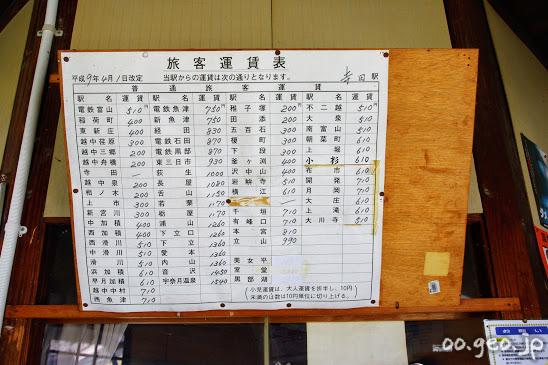 旅客運賃表
平成9年4月1日改定
当駅からの運賃は次の通りとなります。
寺田駅
普通旅客運賃
駅名 運賃 駅名 運賃 駅名 運賃 駅名 運賃
電鉄富山 510円 電鉄魚津 750円 稚子塚 200円 不二越 510円
稲荷町 400 新魚津 750 田添 200 大泉 510
東新庄 400 経田 830 五百石 300 南富山 510
越中荏原 300 電鉄石田 870 榎町 300 朝菜町 610
越中三郷 200 電鉄黒部 870 下段 300 上堀 610
越中舟橋 200 東三日市 930 釜ヶ渕 400 小杉 610
寺田 荻生 1000 沢中山 400 布市 610
越中泉 200 長屋 1080 岩峅寺 510 開発 710
相ノ木 200 舌山 1150 横江 610 月岡 710
上市 300 若栗 1170 大庄 610
新宮川 300 栃屋 1170 千垣 710 上滝 610
中加積 400 浦山 1260 有峰口 710 大川寺 510
西加積 400 下立口 1260 本宮 810
西滑川 510 下立 1360 立山 990
中滑川 510 愛本 1360
滑川 510 内山 1360 美女平
浜加積 610 音沢 1450 室堂
早月加積 610 宇奈月温泉 1540 黒部湖
越中中村 710
西魚津 710
小児運賃は、大人運賃を折半し、10円
未満のは数は10円単位に切り上げる。
oo.geo.jp